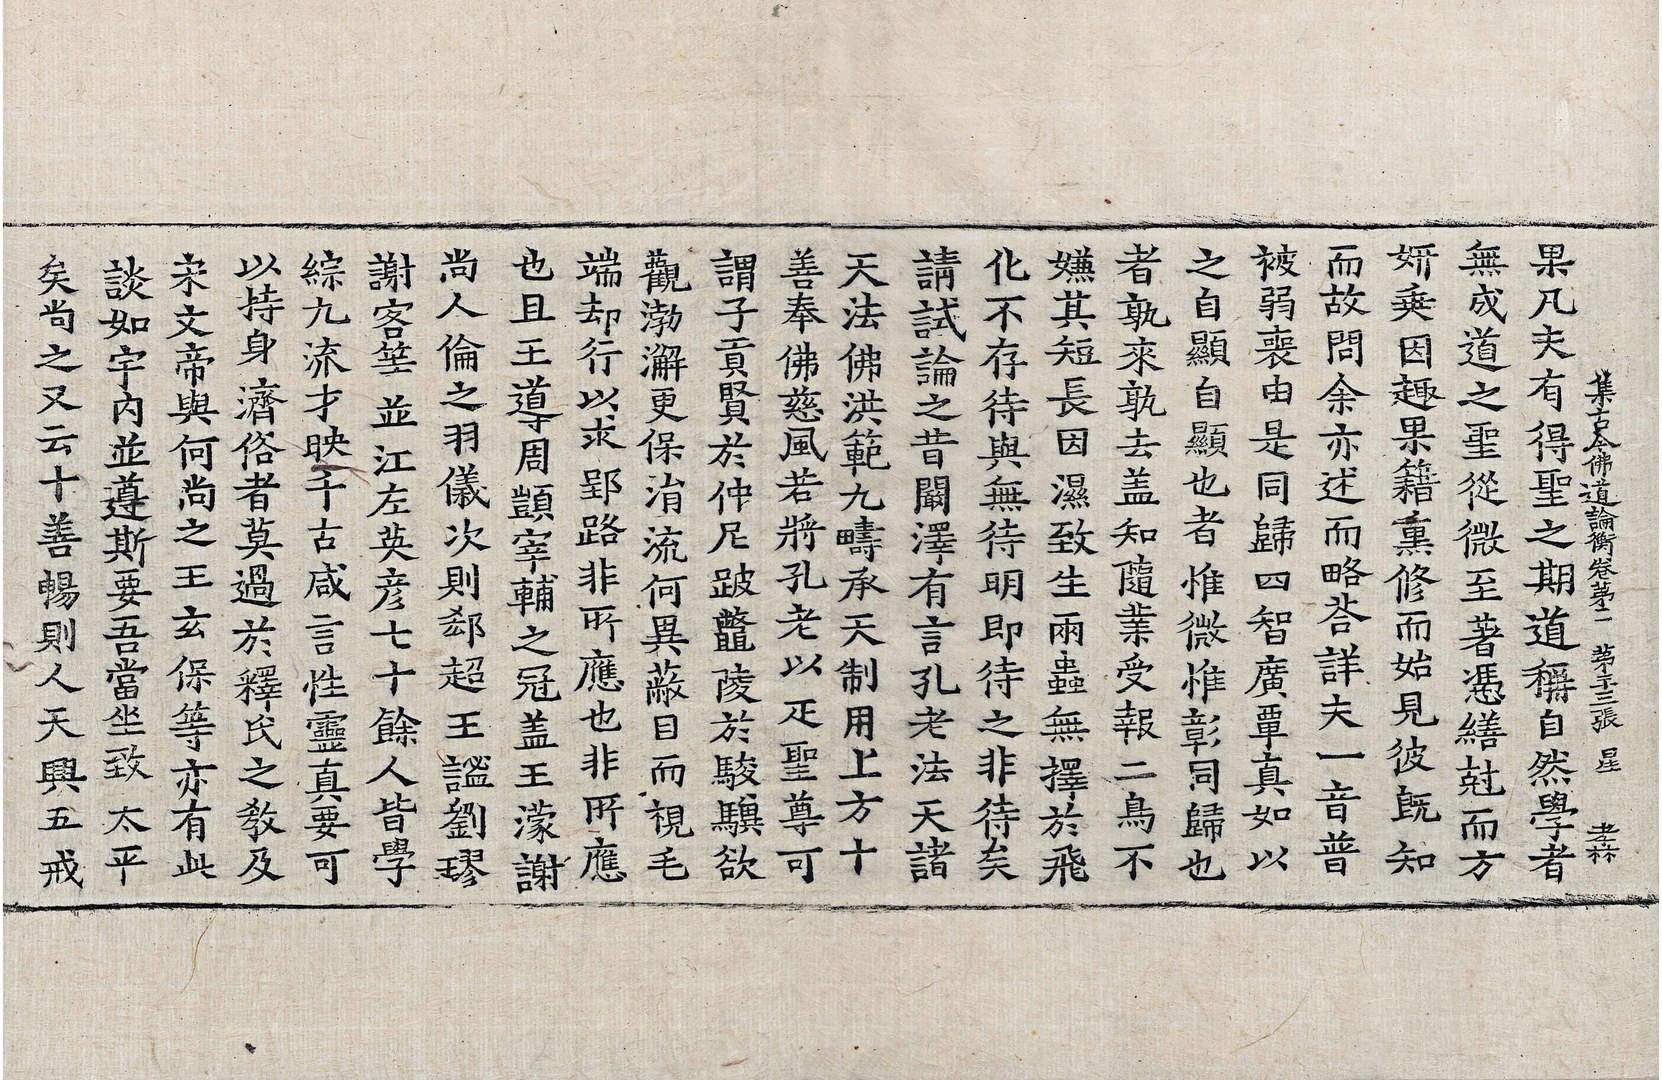 集古今佛道論衡卷第二 第三張 星 孝林
果凡夫有得聖之期道稱自然學者
無成道之聖從微至著憑繕尅而方
婿乗因趣果籍熏修而始見彼旣知
而故問余亦述而略荅詳夫一音普
被弱喪由是同歸四智廣覃真如以
之自顯自顯也者惟微惟彰同歸也
者孰來孰去盖知隨業受報二鳥不
嫌其短長因濕致生兩蟲無擇於飛
化不存待與無待明即待之非待矣
請試論之昔闞澤有言孔老法天諸
天法佛洪範九疇承天制用上方十
善奉佛慈風若將孔老以疋聖尊可
謂子貢賢於仲尼跛鼈陵於駿驥欲
觀渤澥更保涓流何異蔽目而視毛
端却行以求郢路非所應也非所應
也且王導周顗宰輔之冠盖王濛謝
尚人倫之羽儀次則郄超王謐劉璆
謝客等並江左英彦七十餘人皆學
綜九流才映千古咸言性靈真要可
以持身濟俗者莫過於釋氏之教及
宋文帝與何尚之王玄保等亦有此
談如宇内並遵斯要吾當坐致太平
矣尚之又云十善暢則人天興五戒